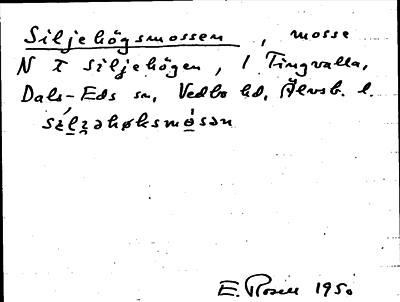 Siljehögsmossen, mosse
N I Siljehögen, i Tingvalla,
Dals-Eds sn, Vedbo hd, Älvsb. l.
E. Rosell 1950